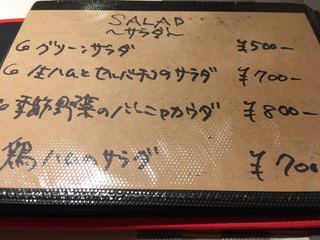 SALAD
～サラダ～
G グリーンサラダ ¥500-
G 生ハムとセルバチコのサラダ ¥700-
G 季節野菜のバーニャカウダ ¥800-
鶏ハムのサラダ ¥700